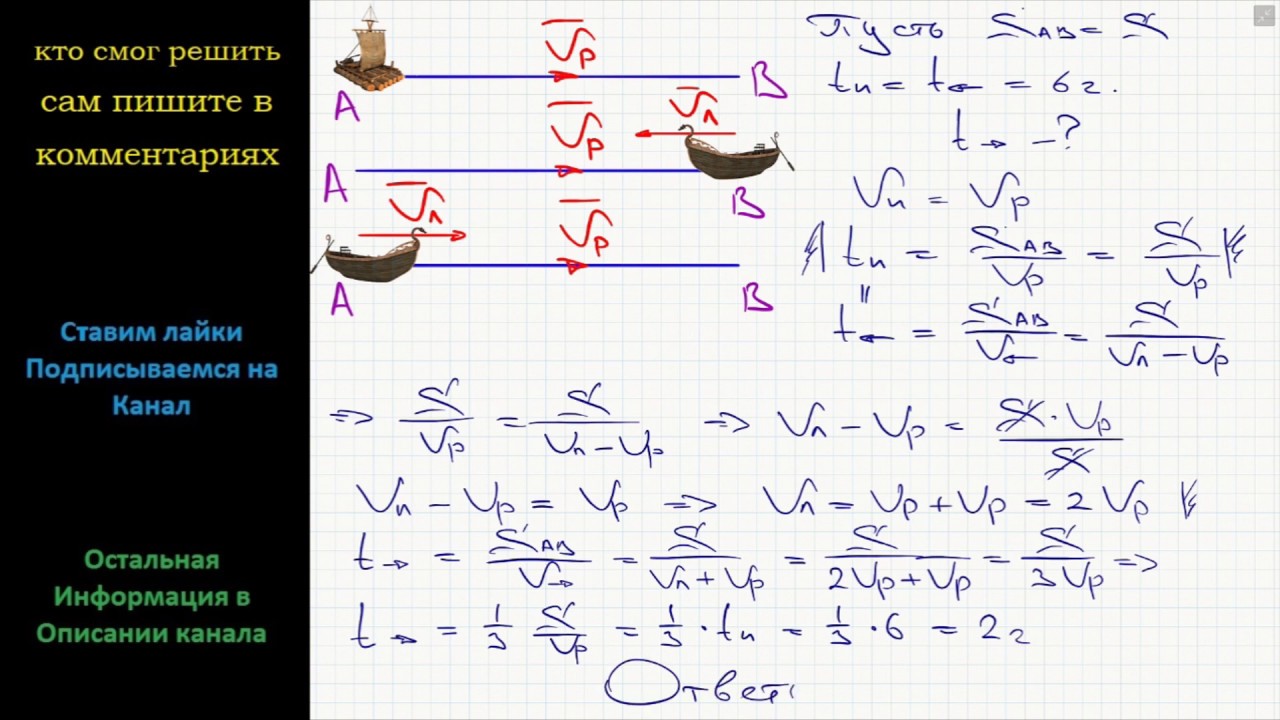 кто смог решить
сам пишите в
комментариях
Ставим лайки
Подписываемся на
Канал
Остальная
Информация в
Описании канала
A Vр B
A Vр Vл B
A Vл Vр B
Пусть S_AB = S
tп = t← = 6 г.
t→ – ?
Vп = Vр
tп = S_AB/Vр = S/Vр
"
t← = S_AB/V← = S/(Vл – Vр)
=> S/Vр = S/(Vл – Vр) => Vл – Vр = S · Vр/S
Vл – Vр = Vр => Vл = Vр + Vр = 2 Vр
t→ = S_AB/V→ = S/(Vл + Vр) = S/(2Vр + Vр) = S/3Vр =>
t→ = 1/3 S/Vр = 1/3 · tп = 1/3 · 6 = 2 г
Ответ: